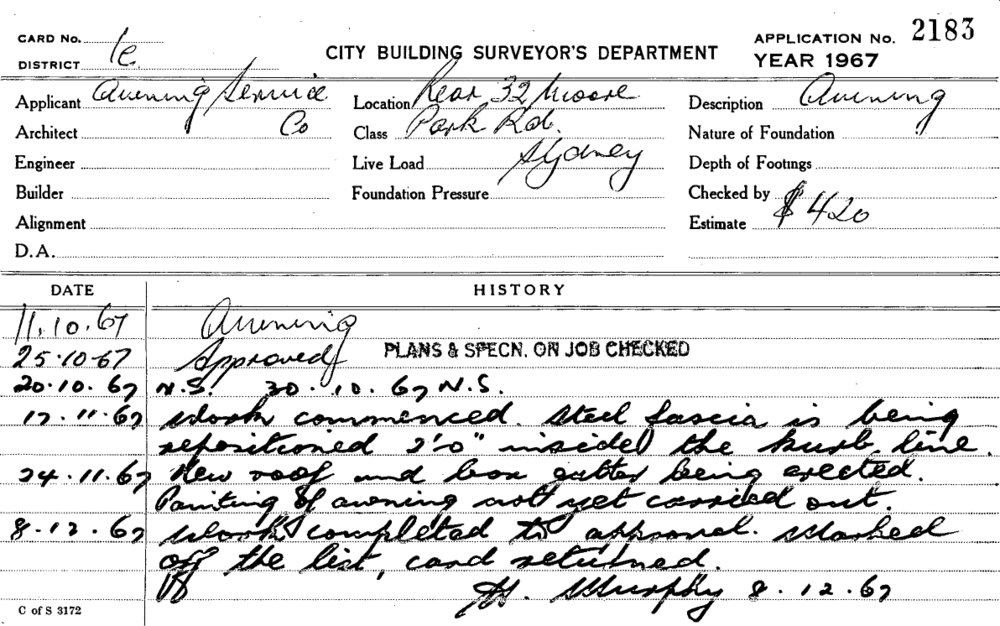 CARD No. 1c.
DISTRICT
CITY BUILDING SURVEYOR'S DEPARTMENT
APPLICATION No. 2183
YEAR 1967
Applicant Awning Service
Co
Location Rear 32 Moore
Description Awning
Architect
Class Park Rd.
Nature of Foundation
Engineer
Live Load Sydney
Depth of Footings
Builder
Foundation Pressure
Checked by
Alignment
Estimate $420
D.A.
DATE HISTORY
11.10.67 Awning
25.10.67 Approved PLANS & SPECN. ON JOB CHECKED
20.10.67 N.S. 30.10.67 N.S.
17.11.67 Work commenced. Steel fascia is being
repositioned 2'0" inside the kurb line.
24.11.67 New roof and box gutter being erected.
Painting of awning not yet carried out.
8.12.67 Work completed to approval. Marked
off the list, card returned.
H. Murphy 8.12.67
C of S 3172